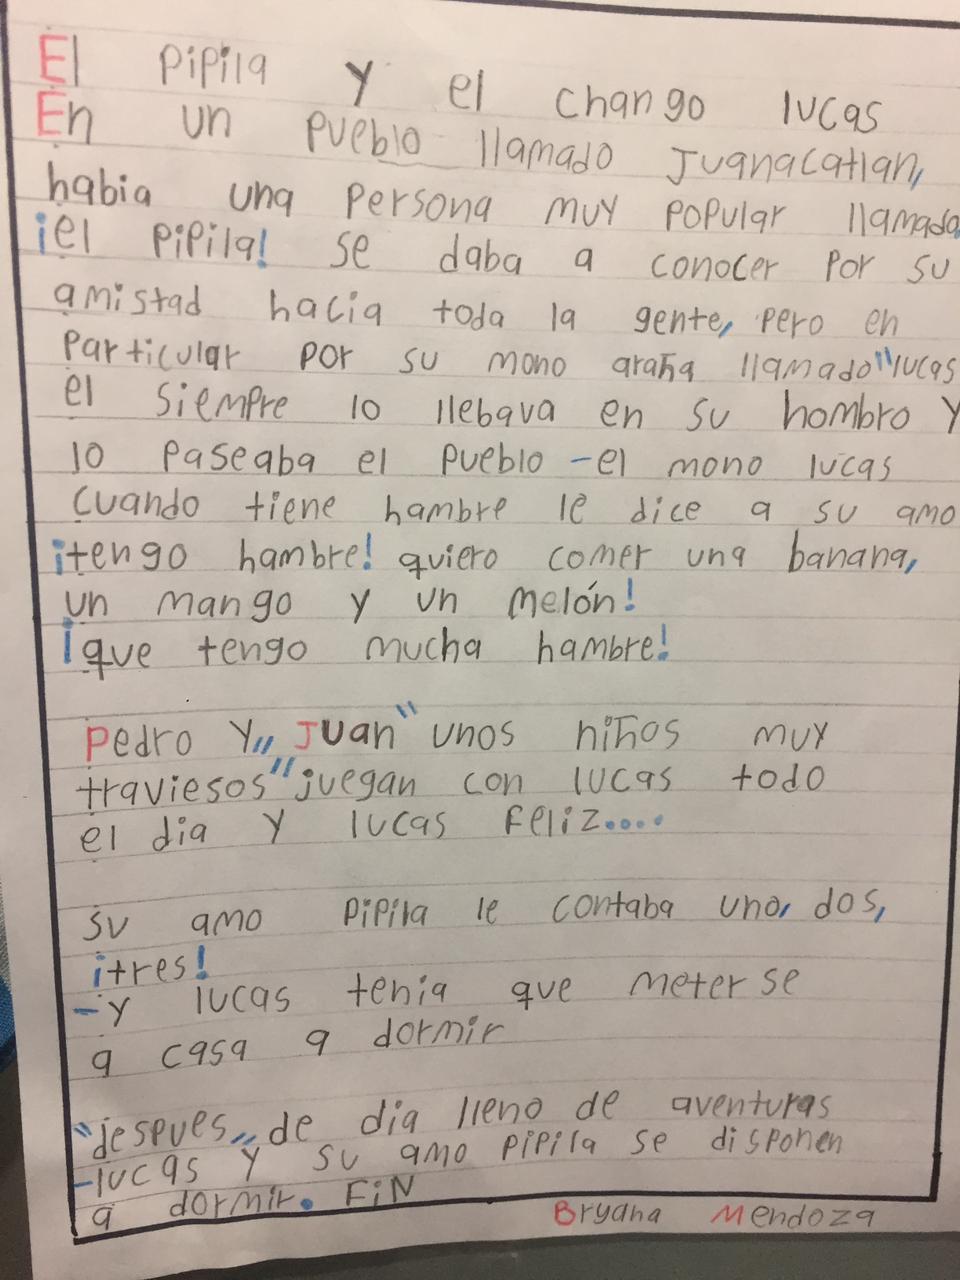 El pipila y el chango lucas
En un pueblo llamado Juanacatlan,
habia una persona muy popular llamada
¡el pipila! se daba a conocer por su
amistad hacia toda la gente, pero en
particular por su mono araña llamado "lucas
el siempre lo llebava en su hombro y
lo paseaba el pueblo -el mono lucas
cuando tiene hambre le dice a su amo
¡tengo hambre! quiero comer una banana,
un mango y un melón!
¡que tengo mucha hambre!
Pedro y,, Juan" unos niños muy
traviesos" juegan con lucas todo
el dia y lucas feliz....
su amo pipila le contaba uno, dos,
¡tres!
-y lucas tenia que meter se
a casa a dormir
"jespues,, de dia lleno de aventuras
-lucas y su amo pipila se disponen
a dormir. FiN
Bryana Mendoza